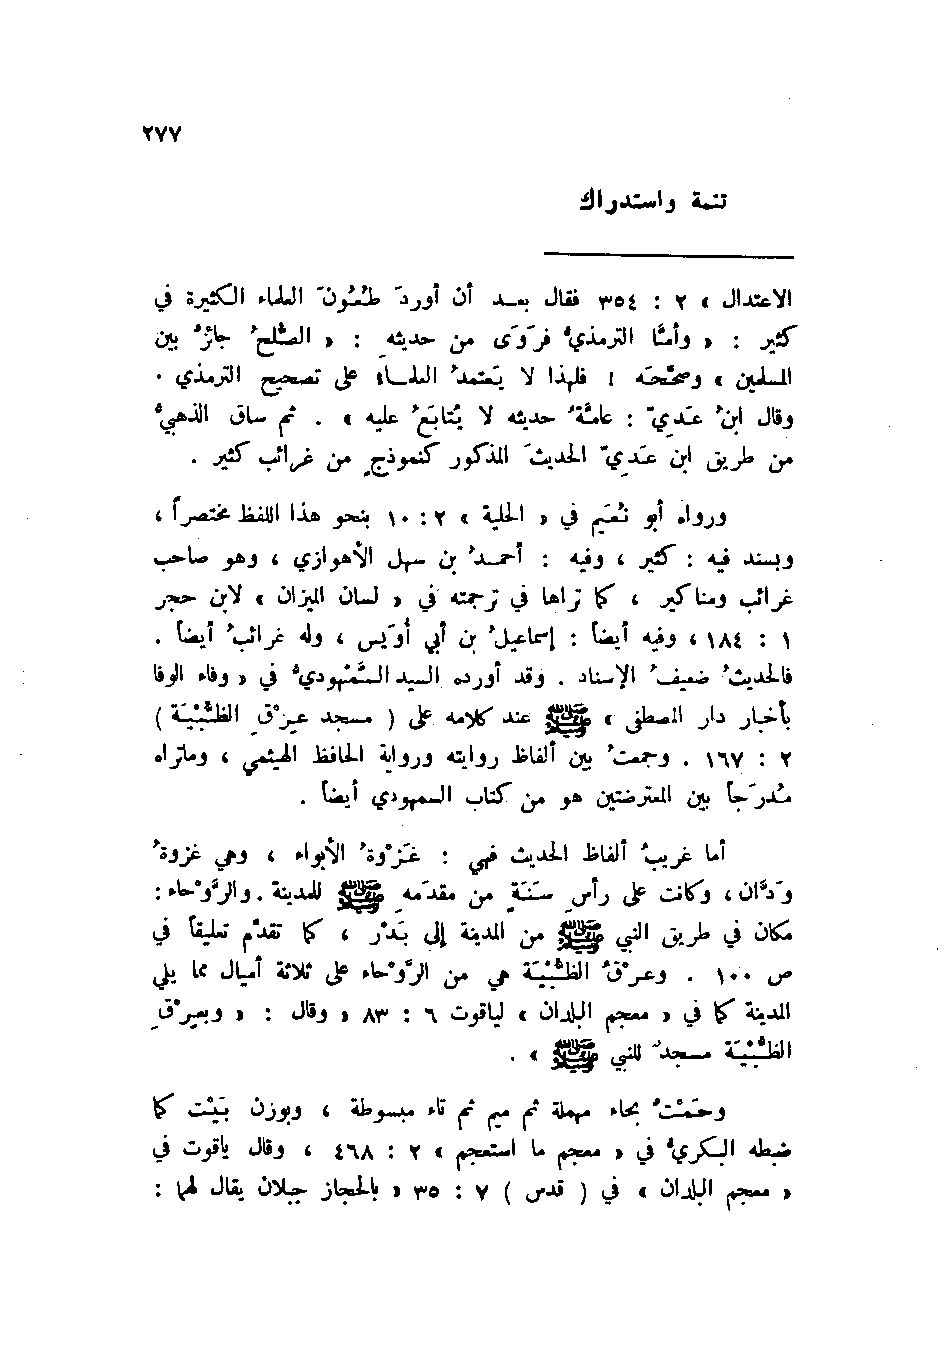 ٢٧٧
تتمة واستدراك
الاعتدال » ٢ : ٣٥٤ فقال بعد أن أوردَ طُعُونَ العلماء الكثيرة في
كثير : « وأمّا الترمذيُّ فرَوَى من حديثهِ : « الصُّلحُ جائزٌ بين
المسلمين » وصحَّحَه ! فلهذا لا يَعتمدُ العلماء على تصحيح الترمذي .
وقال ابنُ عَدِيّ : عامّةُ حديثه لا يُتابَعُ عليه » . ثم ساق الذهبيُّ
من طريق ابن عَدِيّ الحديثَ المذكور كنموذجٍ من غرائب كثير .
ورواه أبو نُعَيم في « الحلية » ٢ : ١٠ بنحو هذا اللفظ مختصراً ،
وبسند فيه : كثير ، وفيه : أحمدُ بن سهل الأهوازي ، وهو صاحب
غرائب ومناكير ، كما تراها في ترجمته في « لسان الميزان » لابن حجر
١ : ١٨٤ ، وفيه أيضاً : إسماعيلُ بن أبي أُوَيس ، وله غرائبُ أيضاً .
فالحديثُ ضعيفُ الإسناد . وقد أورده السيد السَّمْهوديُّ في « وفاء الوفا
بأخبار دار المصطفى » ﷺ عند كلامه على ( مسجد عِرْقِ الظُّبْيَة )
٢ : ١٦٧ . وجمعتُ بين ألفاظ روايته ورواية الحافظ الهيثمي ، وماتراه
مُدرَجاً بين المعترضتين هو من كتاب السمهودي أيضاً .
أما غريبُ ألفاظ الحديث فهي : غَزْوةُ الأبواء ، وهي غزوةُ
وَدَّان ، وكانت على رأسِ سَنَةٍ من مقدَمهِ ﷺ للمدينة . والرَّوْحاء :
مكان في طريق النبي ﷺ من المدينة إلى بَدْر ، كما تقدّم تعليقاً في
ص ١٠٠ . وعِرْقُ الظُّبْيَة هي من الرَّوْحاء على ثلاثة أميال مما يلي
المدينة كما في « معجم البلدان » لياقوت ٦ : ٨٣ « وقال : « وبعِرْقِ
الظُّبْيَة مسجدٌ للنبي ﷺ » .
وحَمْتُ بحاء مهملة ثم ميم ثم تاء مبسوطة ، وبوزن بَيْت كما
ضبطه البكريُّ في « معجم ما استعجم » ٢ : ٤٦٨ ، وقال ياقوت في
« معجم البلدان » في ( قدس ) ٧ : ٣٥ « بالحجاز جبلان يقال لهما :